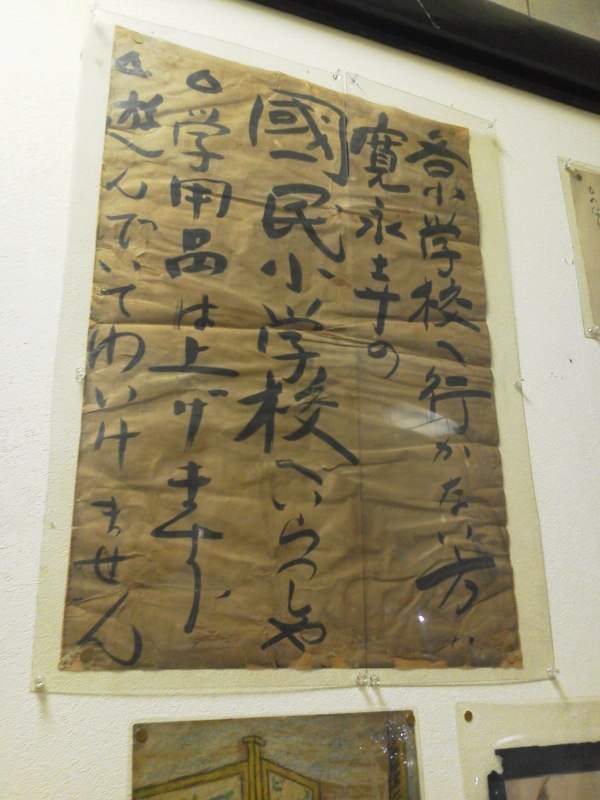 各小学校へ行かない方は
寛永寺の
國民小学校へいらっしゃい
○学用品は上げませう
○遊んでいてわいけません